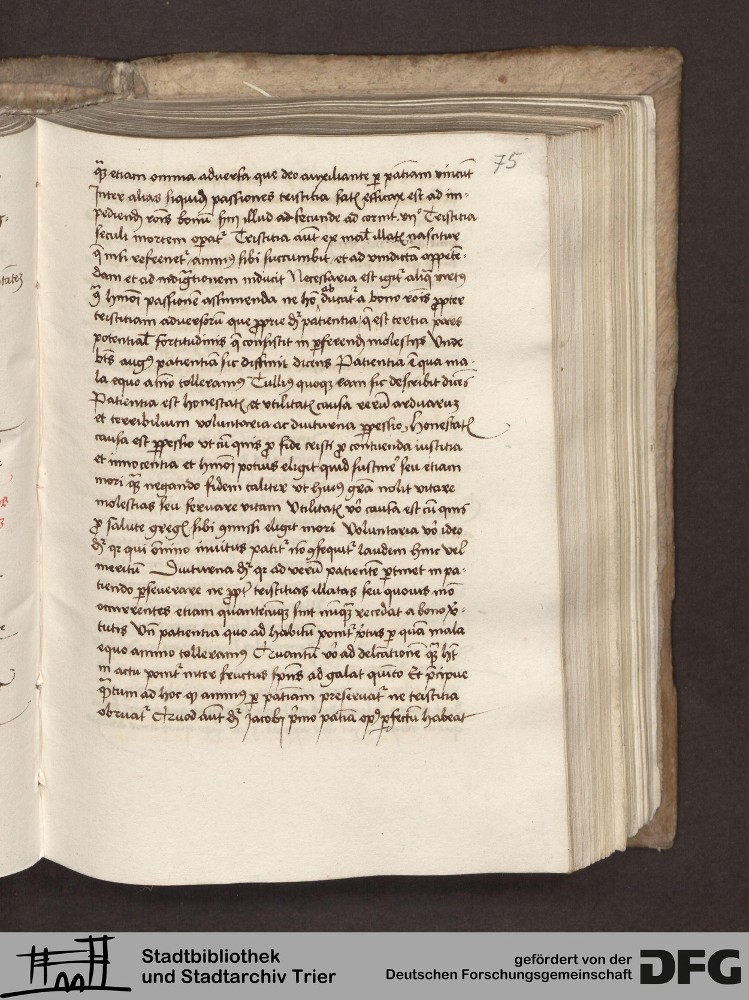 75
q̄ etiam omnia adversa que deo auxiliante p̱ patiam vincūt
Inter alias siquid passiones tristitia satis efficax est ad im-
pediend rōis bonū illud ad secunde ad corint. vij° Tristitia
seculi mortem opat᷑ Tristitia aut ex mal illat nascitur
q̄ nisi refrenet᷑ animꝰ sibi succumbit et ad vindictā appetē-
dam et ad indigtionem inducit Necessaria est igit᷑ aliq̄ virtꝰ
hmōi passionē assumenda ne hō abducat᷑ a bono rōis ꝓpter
tristitiam adversorū que ꝓprie dr patientia q̄ est tertia pars
potential fortitudinis q̄ consistit in p̱ferend molestijs Unde
btūs augꝰ patientiā sic diffinit dicens Patientia ē qua ma-
la equo aīo tolleramꝰ Tulliꝰ quoqꝫ eam sic describit dicēs
Patientia est honestatꝭ et utilitatꝭ causa rerū arduarum
et terribilium voluntaria ac diuturna p̱pessio Honestatꝭ
causa est p̱pessio ut cū quis ꝓ fide cristi ꝓ contuenda iustitia
et innocentia et hmōi potius eligit quid sustine seu etiam
mori q̄ negando fidem taliter ut huiꝰ grā nolit vitare
molestias seu servare vitam Utilitatꝭ vō causa est cū quis
ꝓ salute gregꝭ sibi ꝯmissi eligit mori Voluntaria vō ideo
dr qr qui oīnino invitus patit᷑ nō ꝯsequit᷑ laudem hinc vel
meritū Diuturna dr qr ad verū patientē p̱tinet in pa-
tiendo p̱severare ne ꝓpt tristitias illatas seu quovis mō
occurrentes etiam quantecūqꝫ sint nūqꝫ recedat a bono v̄-
tutis Vn patientia quo ad habitū ponit᷑ v̄tus p̱ quā mala
equo animo tolleramꝰ Quantū vō ad delcationē q̄ ht
in actu ponit᷑ inter fructus spūs ad galat quīto Et p̄cipue
q̄tum ad hoc q animꝰ p̱ patiam preservat᷑ ne tristitia
obruat᷑ Quod aut dr Jacobi p̄mo patia opꝰ p̱fectū habeat
Stadtbibliothek
und Stadtarchiv Trier
gefördert von der
Deutschen Forschungsgemeinschaft
DFG